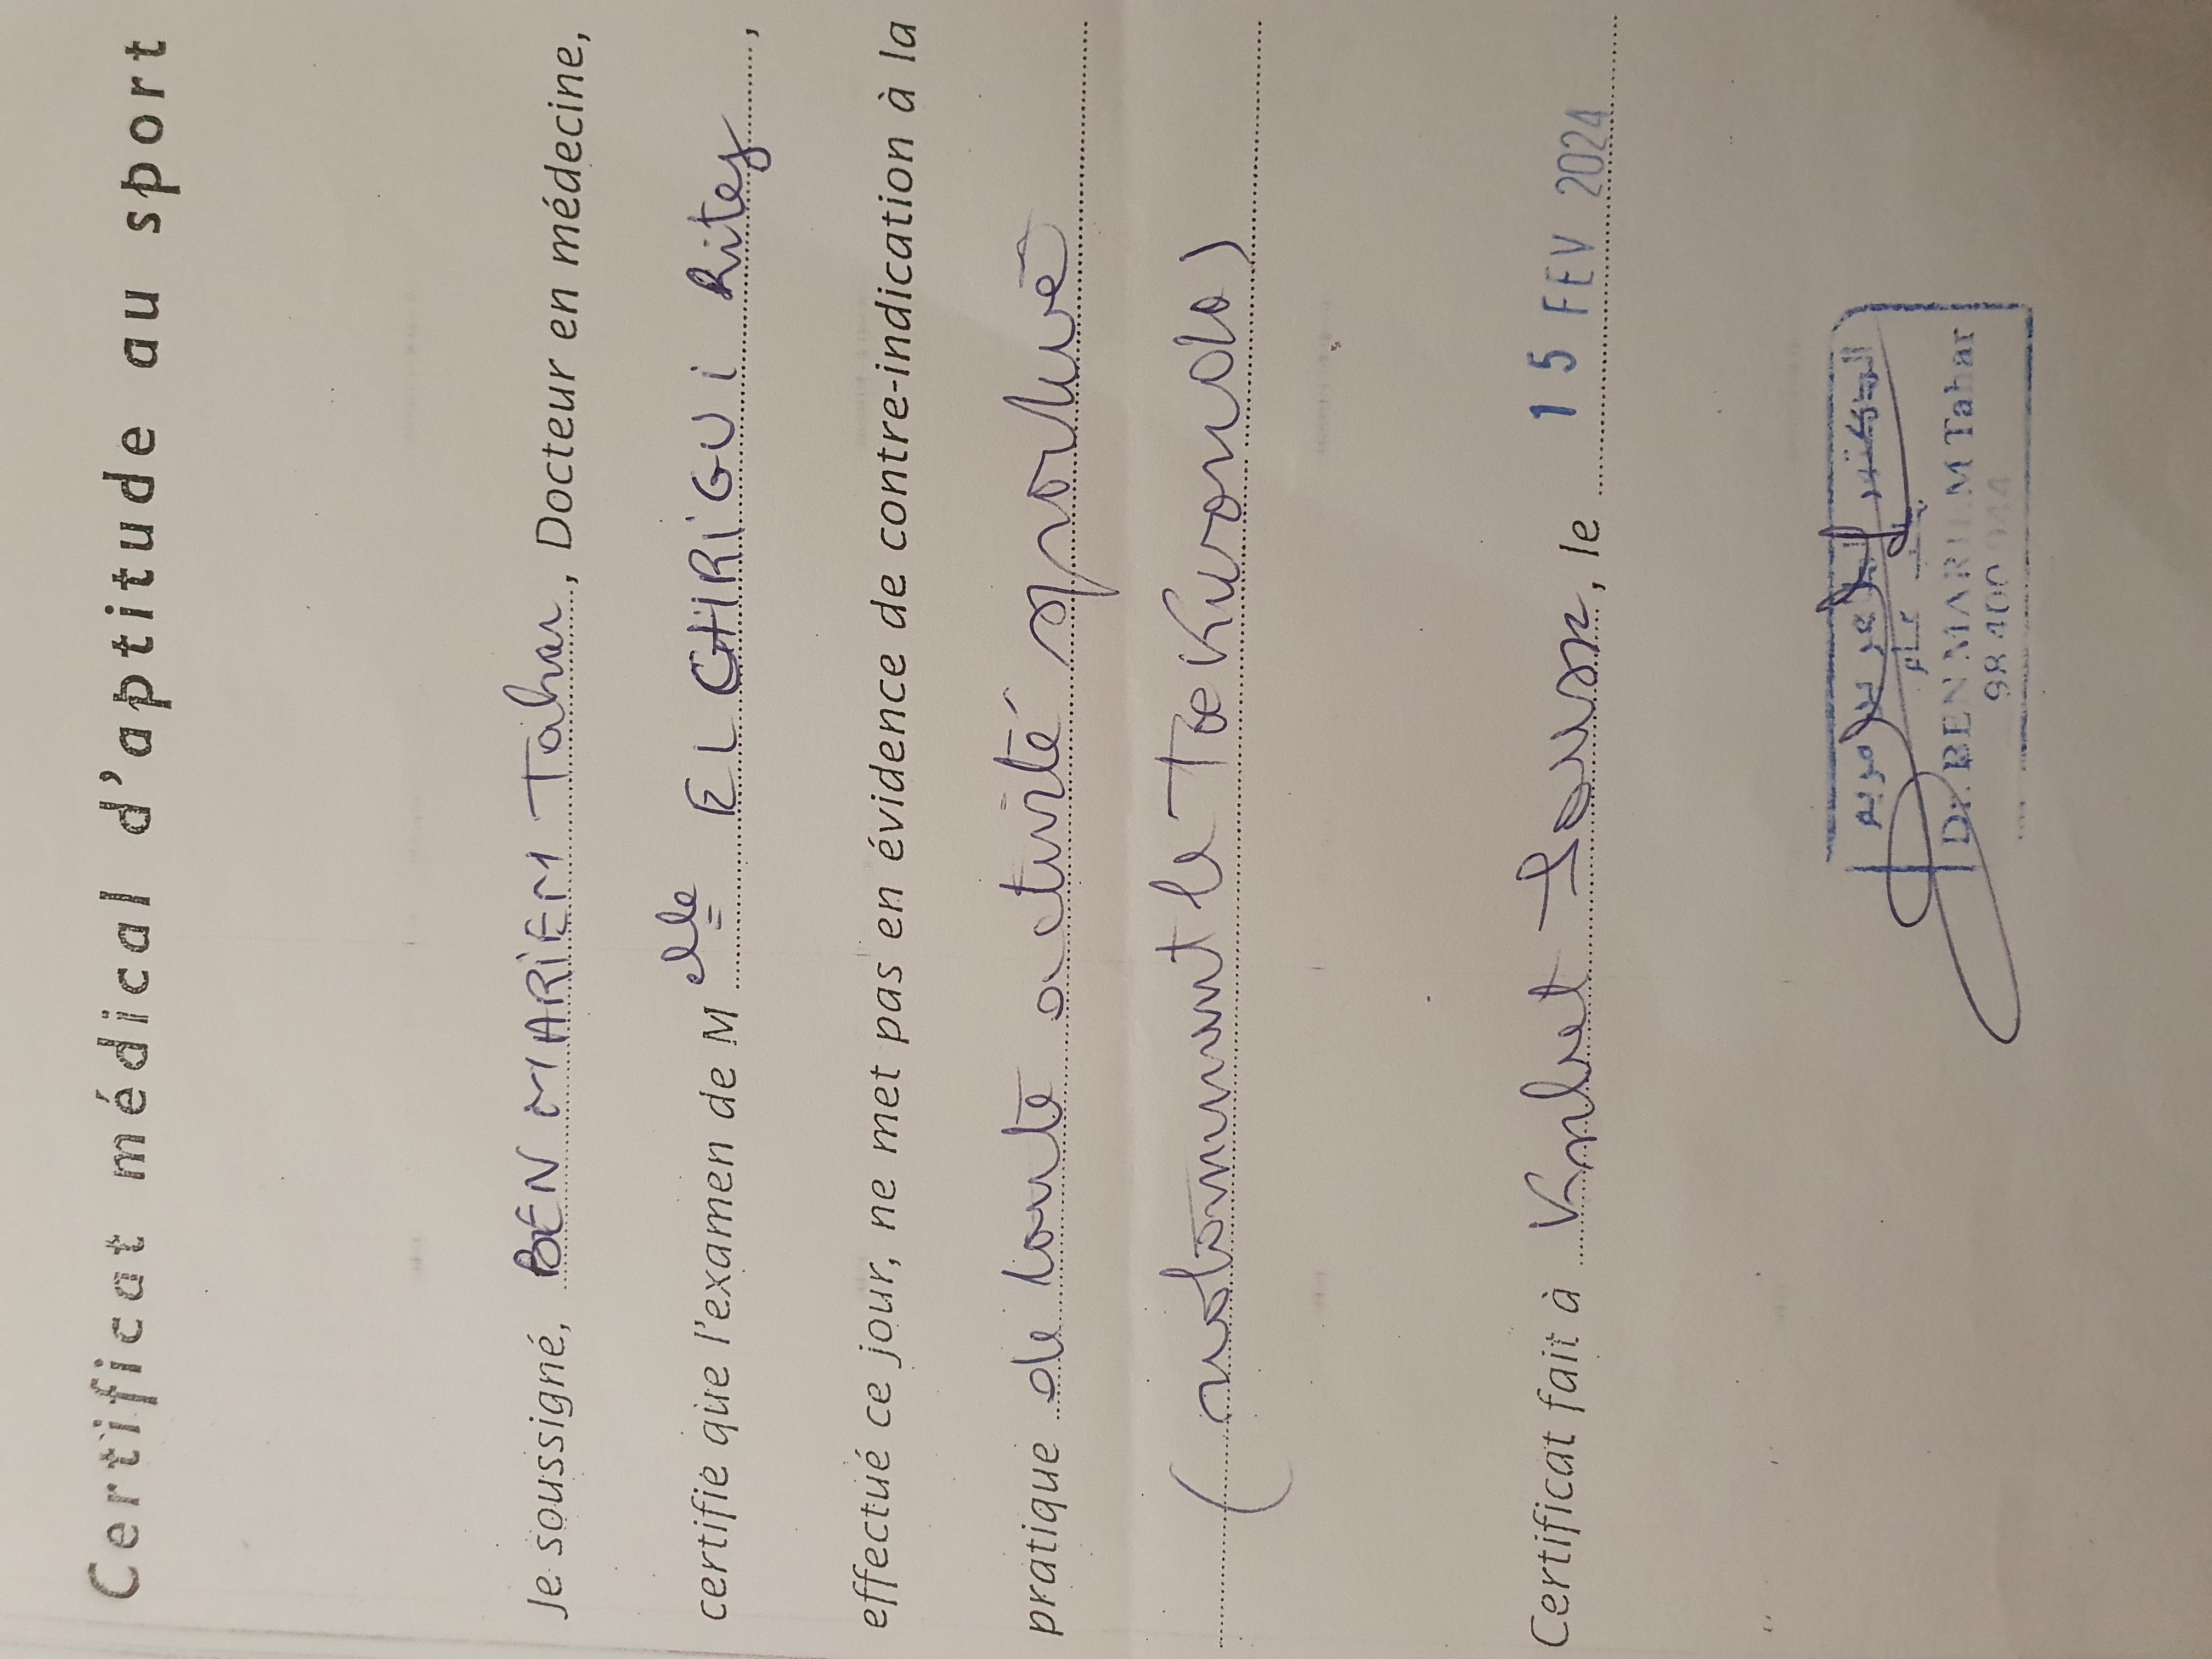 Certificat médical d'aptitude au sport
Je soussigné, BEN MARIEM Tahar, Docteur en médecine,
certifie que l'examen de M elle EL GHRIGUI Ritej,
effectué ce jour, ne met pas en évidence de contre-indication à la
pratique de toute activité sportive
(notamment le Tae Kwondo)
Certificat fait à , le 15 FEV 2024
الدكتور الطاهر بن مريم
Dr. BEN MARIEM Tahar
98 400